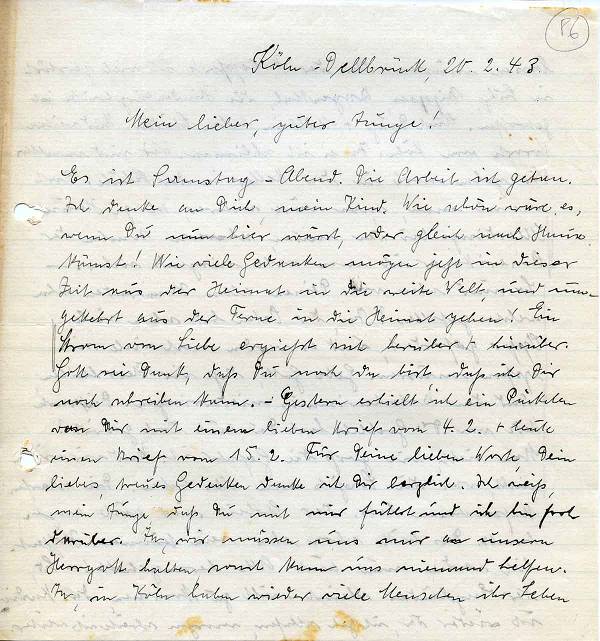 P6
Köln-Dellbrück, 20.2.43.
Mein lieber, guter Junge!
Es ist Samstag-Abend. Die Arbeit ist getan.
Ich denke an Dich, mein Kind. Wie schön wäre es,
wenn Du nun hier wärst, oder gleich nach Hause
kämst! Wie viele Gedanken mögen jetzt in dieser
Zeit aus der Heimat in die weite Welt, und um-
gekehrt aus der Ferne in die Heimat gehen! Ein
Strom von Liebe ergießt sich herüber + hinüber.
Gott sei Dank, daß Du noch da bist, daß ich Dir
noch schreiben kann. - Gestern erhielt ich ein Päckchen
von Dir mit einem lieben Brief vom 4.2. + heute
einen Brief vom 15.2. Für Deine lieben Worte, Dein
liebes, treues Gedenken danke ich Dir herzlich. Ich weiß,
mein Junge, daß Du mit mir fühlst und ich bin froh
darüber. Ja, wir müssen uns nur an unsern
Herrgott halten sonst kann uns niemand helfen.
Ja, in Köln haben wieder viele Menschen ihr Leben